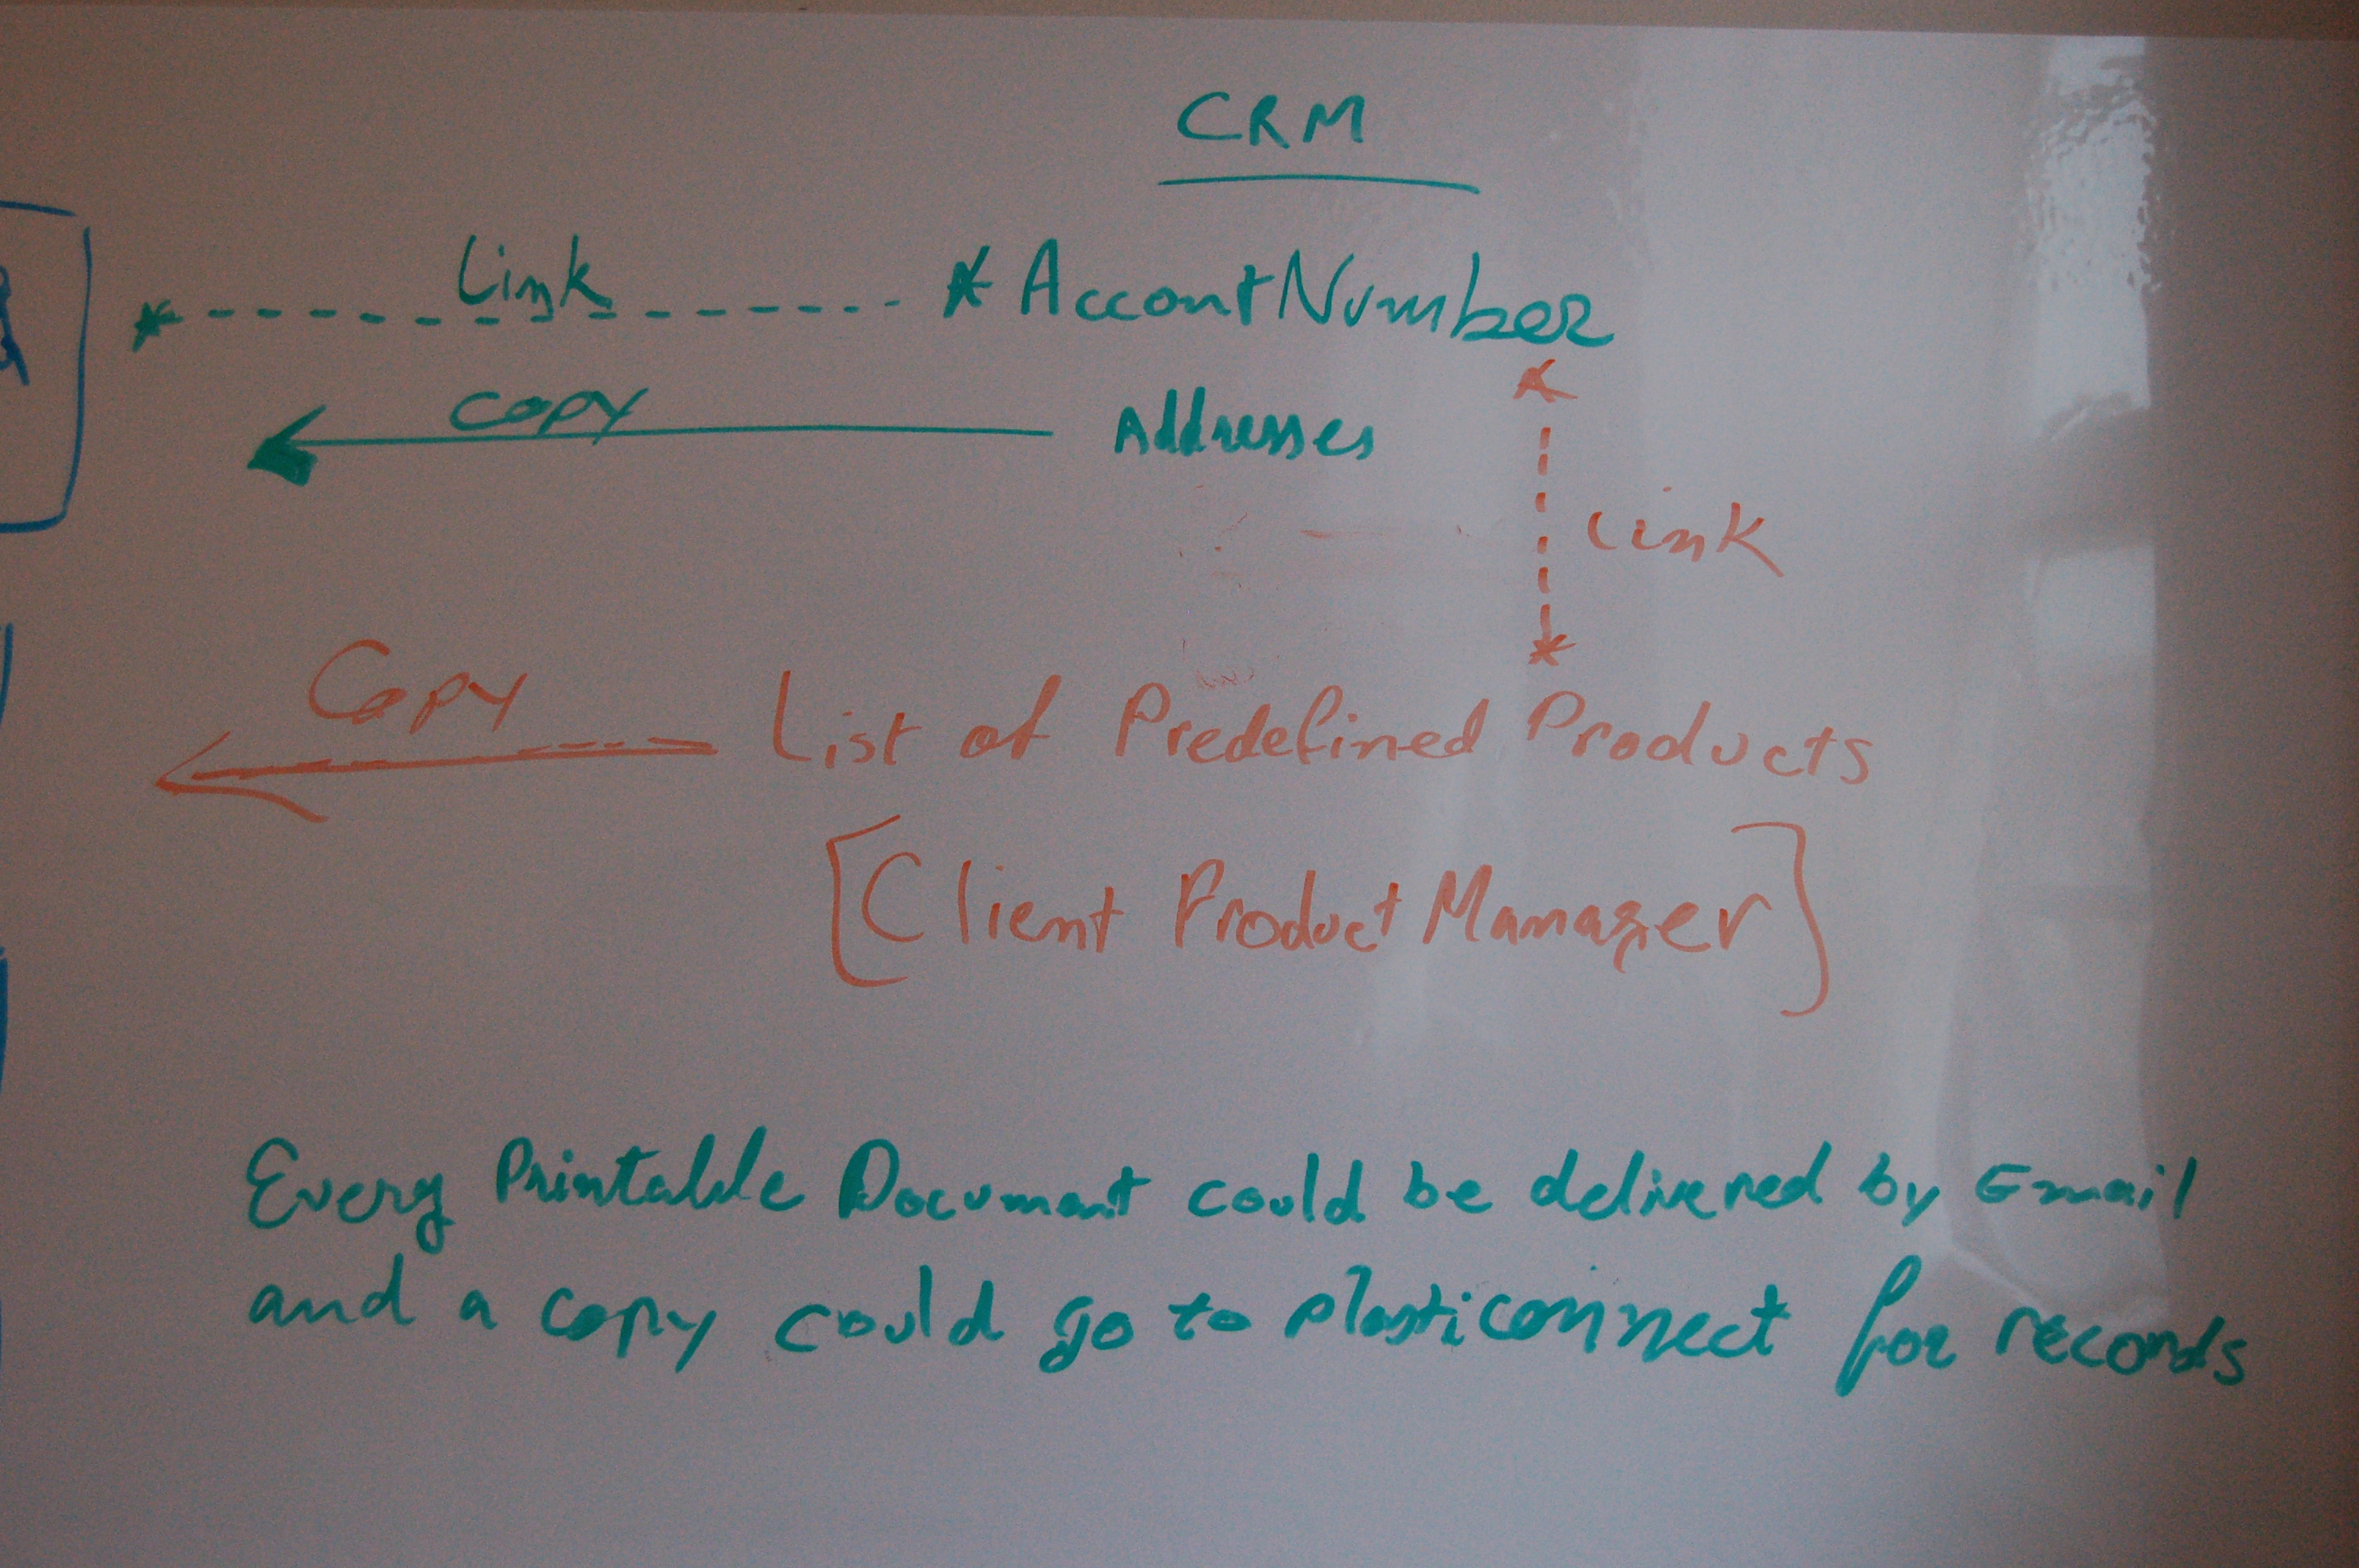 CRM
Link * AccontNumber
Copy Addresses
Link
Copy List of Predefined Products
[Client Product Manager]
Every Printable Document could be delivered by Email
and a copy could go to plasticonnect for records